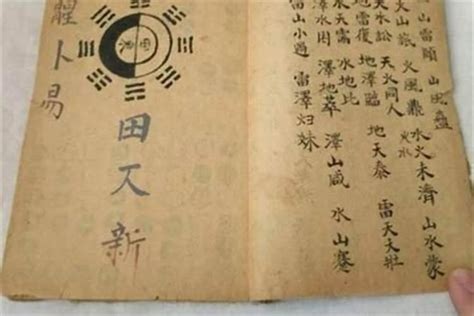 山雷頤 山風蠱
火山旅 火風鼎 火水未濟 山水蒙
天水訟 天火同人
地雷復 地澤臨 地天泰 雷天大壯
水天需 水地比
澤水困 澤地萃 澤山咸 水山蹇
雷山小過 雷澤歸妹
田 新
卜易